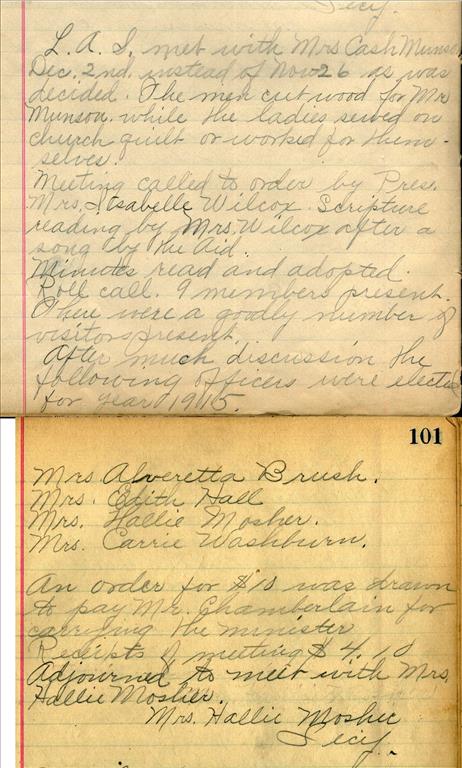 Secy.
L. A. S. met with Mrs Cash Munson
Dec. 2nd. instead of Nov 26 as was
decided. The men cut wood for Mr
Munson while the ladies sewed on
church quilt or worked for them-
selves.
Meeting called to order by Pres.
Mrs. Isabelle Wilcox. Scripture
reading by Mrs. Wilcox after a
song by the Aid.
Minutes read and adopted.
Roll call. 9 members present.
There were a goodly number of
visitors present.
After much discussion the
following officers were elected
for year 1915.
101
Mrs Alveretta Brush.
Mrs. Edith Hall
Mrs. Hallie Mosher.
Mrs. Carrie Washburn.
An order for $10 was drawn
to pay Mr. Chamberlain for
carrying the minister
Receipts of meeting $ 4.10
Adjourned to meet with Mrs.
Hallie Mosher.
Mrs. Hallie Mosher
Secy.